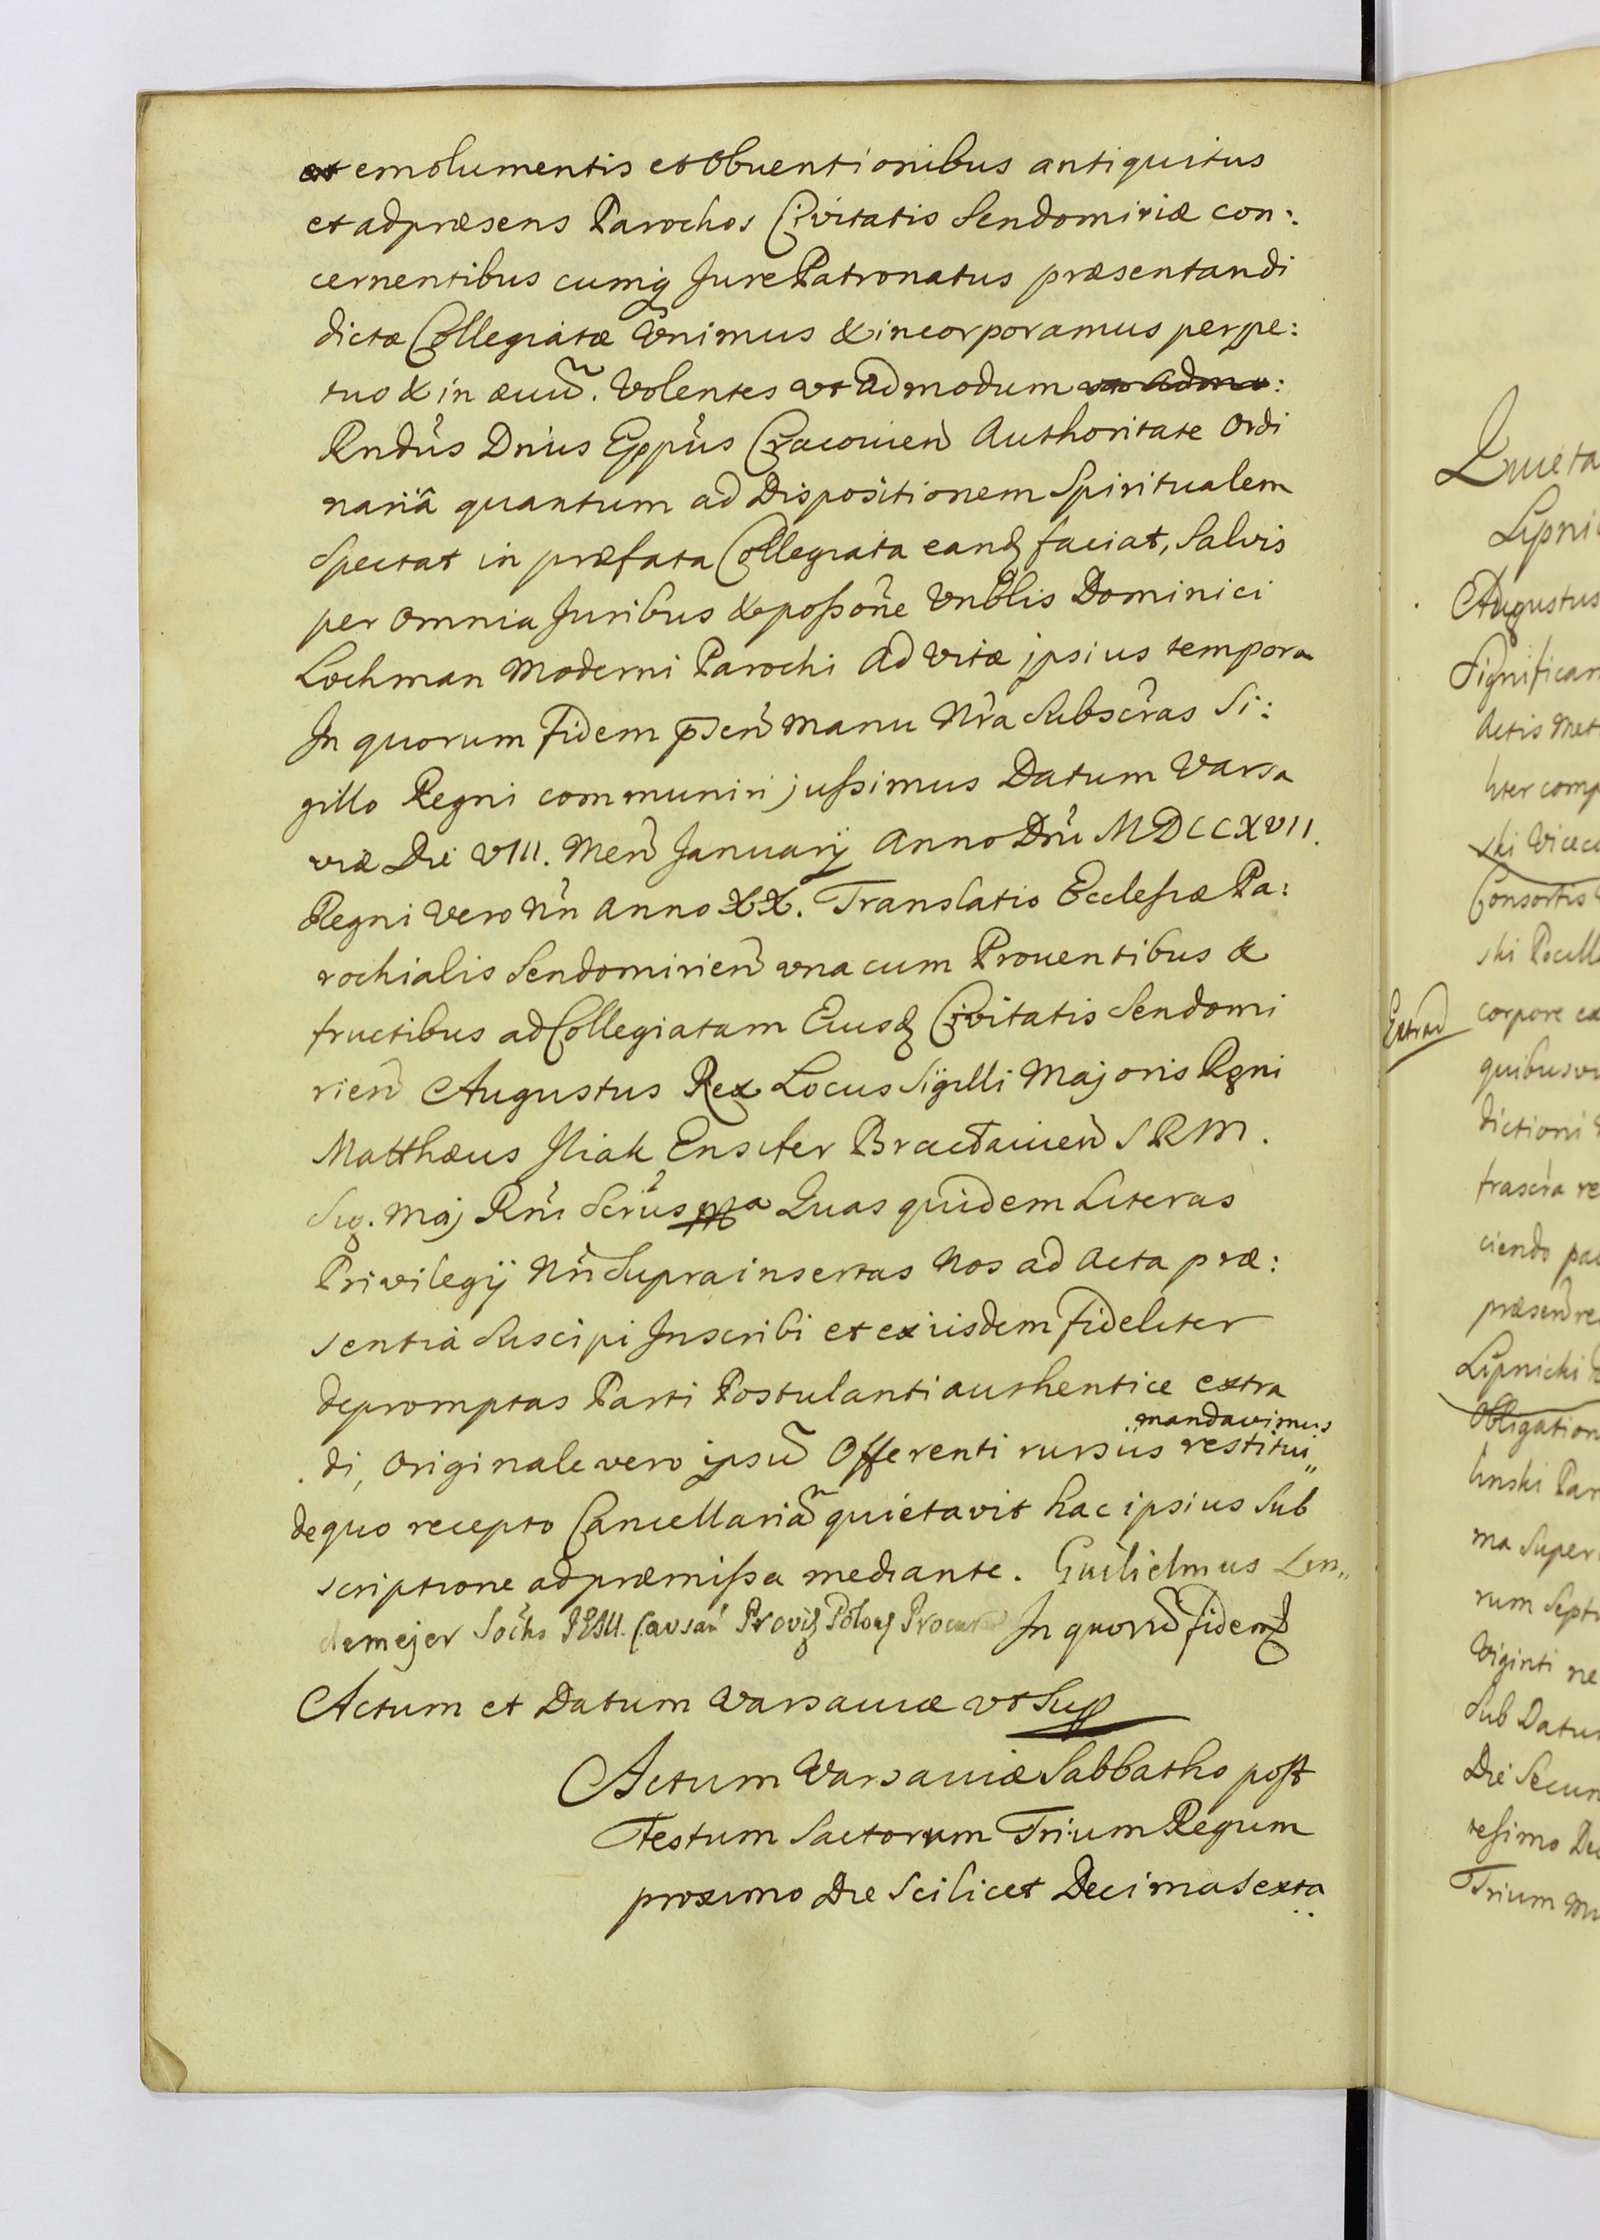 et emolumentis et Obuentionibus antiquitus
et ad præsens Parochos Civitatis Sendomiriæ con:
cernentibus cumq Jure Patronatus præsentandi
dictæ Collegiatæ Vnimus & incorporamus perpe:
tuo & in æuu. Volentes vt admodum
Rndus Dnus Eppus Cracouien Authoritate Ordi
nariâ quantum ad Dispositionem Spiritualem
Spectat in præfata Collegiata eand faciat, Salvis
per Omnia Juribus & possone Vnblis Dominici
Lochman Moderni Parochi ad vitæ jpsius tempora
In quorum fidem pnsen manu Nra Subscras Si:
gillo Regni communiri jussimus Datum Varsa
viæ Die VIII. Men Januarij Anno Dni MDCCXVII.
Regni Vero Nri Anno XX. Translatio Ecclesiæ Pa:
rochialis Sendomirien vna cum Prouentibus &
fructibus ad Collegiatam Eiusd Civitatis Sendomi
rien Augustus Rex Locus Sigilli Majoris Rgni
Matthæus Iliak Ensifer Braclauien S R M.
Sig. Maj Rni Scrius mpa Quas quidem Literas
Privilegij Nri Supra insertas Nos ad Acta præ:
sentia Suscipi Inscribi et ex iisdem fideliter
depromptas Parti Postulanti authentice extra
mandavimus
di, Originale vero ipsu Offerenti rursus restitui„
de quo recepto Cancellaria quietavit hac ipsius Sub
scriptione ad præmissa mediante. Guilielmus Lin„
demejer Socts JESU. Causar Provi Polo Procur In quoru fidem
Actum et Datum Varsauiæ vt Sup
Actum Varsauiæ Sabbatho post
Festum Sactorum Trium Regum
proximo Die Scilicet Decima Sexta
Quieta
Lipni
Augustus
Significam
Actis Met
liter comp
ski Vicec
Consortis
ski Pocill
Extrad
corpore ex
quibusvi
dictioni
frascra re
ciendo pa
præsen re
Lipnicki
Obligation
linski Par
ma Super
rum Sept
Viginti ne
Sub Datu
Die Secun
tesimo De
Trium M